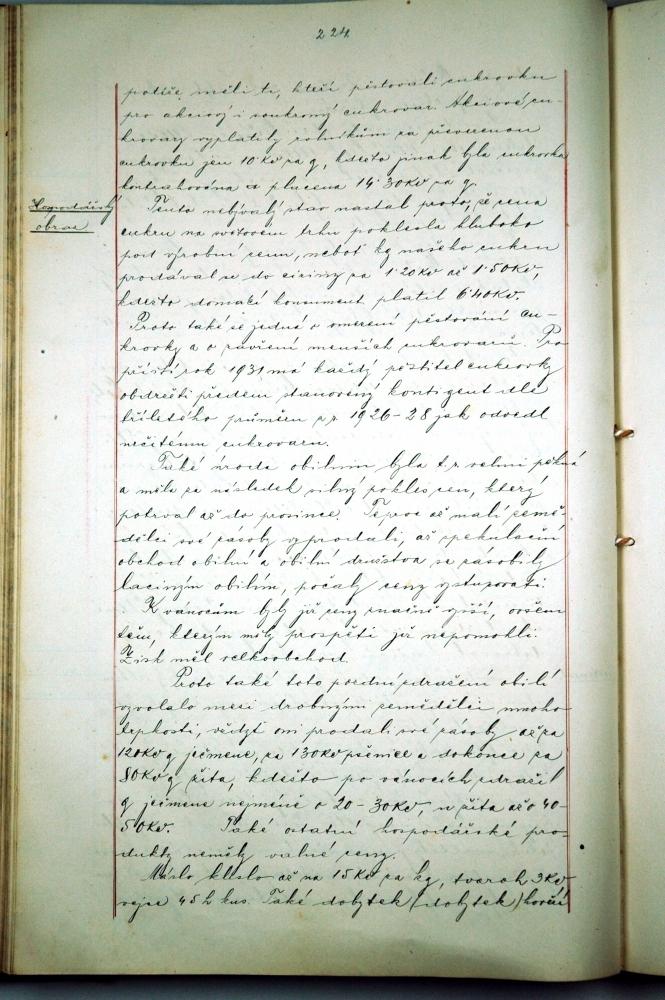 224
potíže měli ti, kteří pěstovali cukrovku
pro akciový i soukromý cukrovar. Akciové cu-
krovary vyplatily rolníkům za převzenou
cukrovku jen 10 Kč za q, kdežto jinak byla cukrovka
kontrahována a placena 14˙30 Kč za q.
Hospodářský
obraz
Tento nebývalý stav nastal proto, že cena
cukru na světovém trhu poklesla hluboko
pod výrobní cenu, neboť kg našeho cukru
prodával se do ciziny za 1˙20 Kč až 1˙50 Kč,
kdežto domácí konsument platil 6˙40 Kč.
Proto také se jedná o omezení pěstování cu-
krovky a o zavření menších cukrovarů. Pro
příští rok 1931 má každý pěstitel cukrovky
obdržeti předem stanovený kontigent dle
tříletého průměru z r. 1926-28 jak odvedl
určitému cukrovaru.
Také úroda obilnin byla t. r. velmi pěkná
a měla za následek silný pokles cen, který
potrval až do prosince. Teprve až malí země-
dělci své zásoby vyprodali, až spekulační
obchod obilní a obilní družstva se zásobily
laciným obilím, počaly ceny vystupovati.
K vánocům byly již ceny značně vyšší, ovšem
těm, kterým měly prospěti již nepomohli.
Zisk měl velkoobchod.
Proto také toto pozdní zdražení obilí
vyvolalo mezi drobnými zemědělci mnoho
trpkosti, vždyť oni prodali své zásoby až za
120 Kč q ječmene, za 130 Kč pšenice a dokonce za
80 Kč q žita, kdežto po vánocích zdražil
q ječmene nejméně o 20-30 Kč, u žita až o 40-
50 Kč. Také ostatní hospodářské pro-
dukty neměly valné ceny.
Máslo kleslo až na 15 Kč za kg, tvaroh 3 Kč
vejce 45 h kus. Také dobytek (dobytek) hovězí